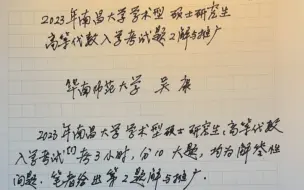 2023年南昌大学学术型硕士研究生
高等代数入学考试题2解与推广
华南师范大学 吴康
2023年南昌大学学术型硕士研究生高等代数
入学考试[1]考3小时，分10大题，均为解答性
问题. 笔者给出第2题解与推广.